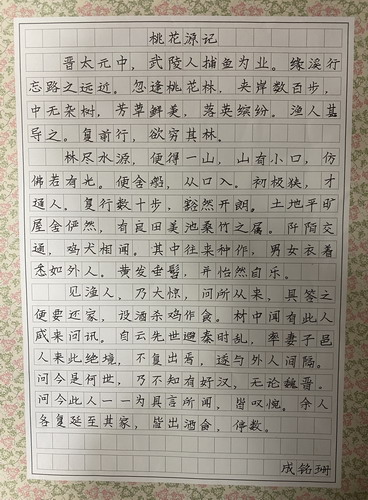 桃花源记
晋太元中，武陵人捕鱼为业。缘溪行
忘路之远近。忽逢桃花林，夹岸数百步，
中无杂树，芳草鲜美，落英缤纷。渔人甚
异之。复前行，欲穷其林。
林尽水源，便得一山，山有小口，仿
佛若有光。便舍船，从口入。初极狭，才
通人。复行数十步，豁然开朗。土地平旷
屋舍俨然，有良田美池桑竹之属。阡陌交
通，鸡犬相闻。其中往来种作，男女衣着
悉如外人。黄发垂髫，并怡然自乐。
见渔人，乃大惊，问所从来，具答之
便要还家，设酒杀鸡作食。村中闻有此人
咸来问讯。自云先世避秦时乱，率妻子邑
人来此绝境，不复出焉，遂与外人间隔。
问今是何世，乃不知有汉，无论魏晋。
问今此人一一为具言所闻，皆叹惋。余人
各复延至其家，皆出酒食，停数。
成铭珊